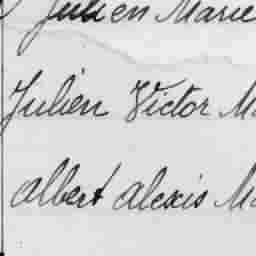 Julien Marie
Julien Victor
Albert Alexis